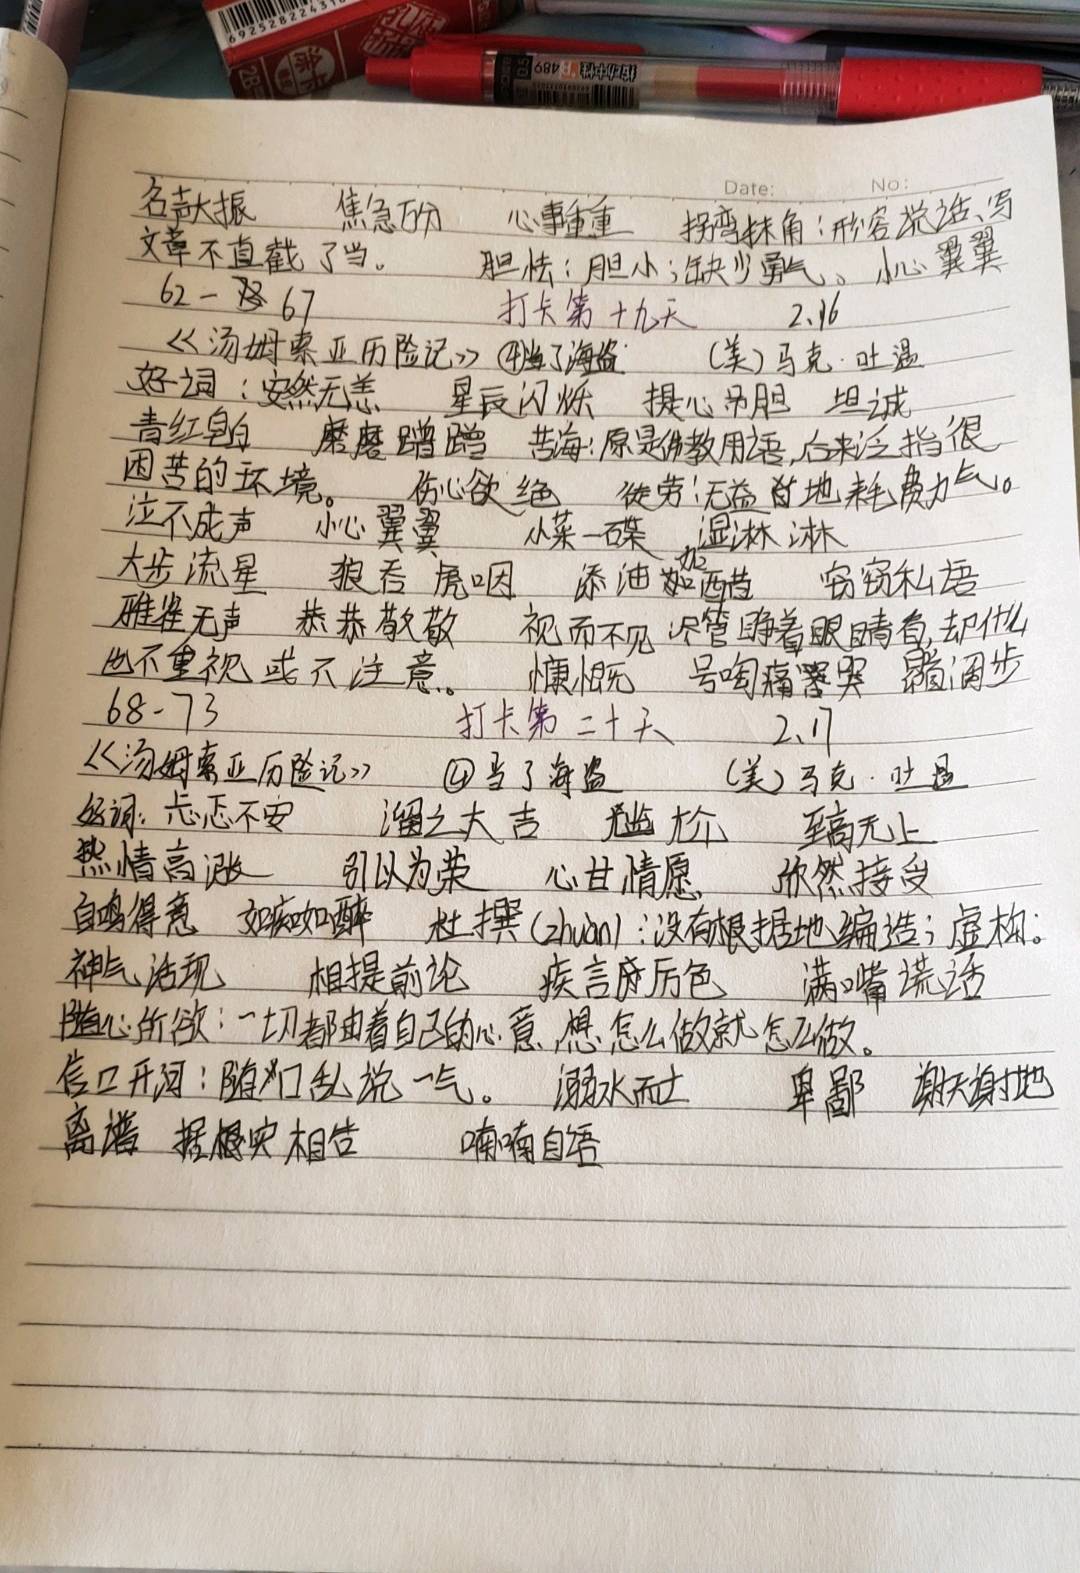 6925282243
2B
0.5
489
Date: No:
名声大振 焦急万分 心事重重 拐弯抹角：形容说话、写
文章不直截了当。 胆怯：胆小；缺少勇气。 小心翼翼
62－67 打卡第十九天 2.16
《汤姆索亚历险记》④当了海盗 （美）马克·吐温
好词：安然无恙 星辰闪烁 提心吊胆 坦诚
青红皂白 磨磨蹭蹭 苦海：原是佛教用语，后来泛指很
困苦的环境。 伤心欲绝 徒劳：无益地耗费力气。
泣不成声 小心翼翼 小菜一碟 湿淋淋
大步流星 狼吞虎咽 添油加醋 窃窃私语
雅雀无声 恭恭敬敬 视而不见 尽管睁着眼睛看，却什么
也不重视或不注意。 慷慨 号啕痛哭 阔步
68-73 打卡第二十天 2.17
《汤姆索亚历险记》 ④当了海盗 （美）马克·吐温
好词：忐忑不安 溜之大吉 尴尬 至高无上
热情高涨 引以为荣 心甘情愿 欣然接受
自鸣得意 如痴如醉 杜撰（zhuàn）：没有根据地编造；虚构。
神气活现 相提前论 疾言厉色 满嘴谎话
随心所欲：一切都由着自己的心意，想怎么做就怎么做。
信口开河：随口乱说一气。 溺水而亡 卑鄙 谢天谢地
离谱 据实相告 喃喃自语